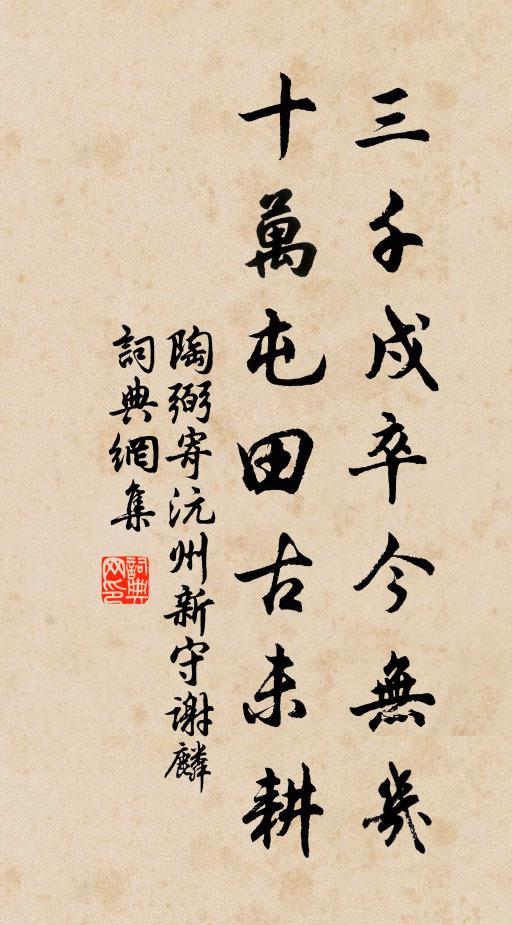 三千戍卒今無幾
十萬屯田古未耕
陶弼寄沅州新守謝麟
詞典網集
詞典网印